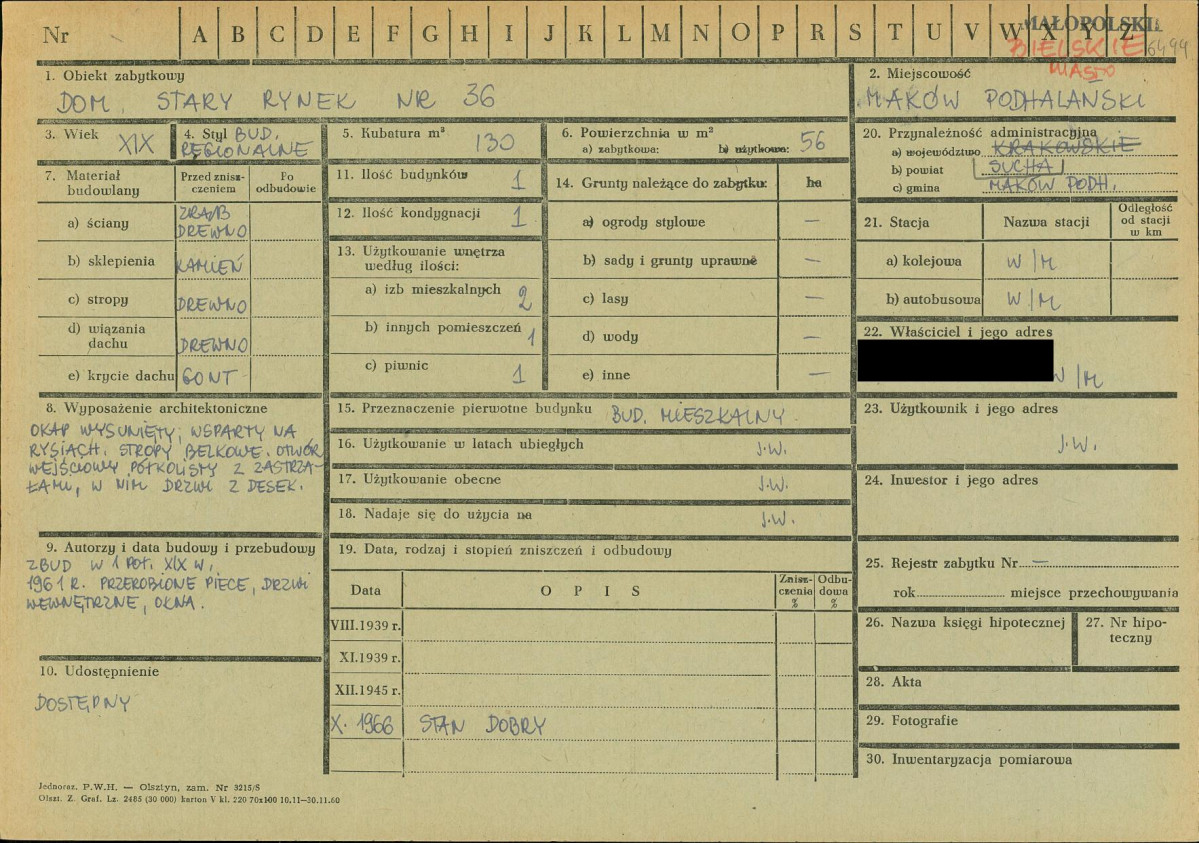 Nr A B C D E F G H I J K L M N O P R S T U V W X Y Z
MAŁOPOLSKI
BIELSKIE 6494
MIASTO
1. Obiekt zabytkowy
DOM, STARY RYNEK NR 36
2. Miejscowość
MAKÓW PODHALAŃSKI
3. Wiek XIX
4. Styl BUD.
REGIONALNE
5. Kubatura m³ 130
6. Powierzchnia w m²
a) zabytkowa: b) użytkowa: 56
20. Przynależność administracyjna
a) województwo KRAKOWSKIE
b) powiat SUCHA
c) gmina MAKÓW PODH.
7. Materiał
budowlany
Przed znisz-
czeniem
Po
odbudowie
a) ściany ZRĄB
DREWNO
b) sklepienia KAMIEŃ
c) stropy DREWNO
d) wiązania
dachu DREWNO
e) krycie dachu GONT
11. Ilość budynków 1
12. Ilość kondygnacji 1
13. Użytkowanie wnętrza
według ilości:
a) izb mieszkalnych 2
b) innych pomieszczeń 1
c) piwnic 1
14. Grunty należące do zabytku: ha
a) ogrody stylowe —
b) sady i grunty uprawne —
c) lasy —
d) wody —
e) inne —
21. Stacja Nazwa stacji
Odległość
od stacji
w km
a) kolejowa W/M
b) autobusowa W/M
22. Właściciel i jego adres
W/M
8. Wyposażenie architektoniczne
OKAP WYSUNIĘTY, WSPARTY NA
RYSIACH. STROPY BELKOWE. OTWÓR
WEJŚCIOWY PÓŁKOLISTY Z ZASTRZA-
ŁAMI, W NIM DRZWI Z DESEK.
15. Przeznaczenie pierwotne budynku BUD. MIESZKALNY
16. Użytkowanie w latach ubiegłych J.W.
17. Użytkowanie obecne J.W.
18. Nadaje się do użycia na J.W.
23. Użytkownik i jego adres
J.W.
24. Inwestor i jego adres
9. Autorzy i data budowy i przebudowy
ZBUD W 1 POŁ. XIX W.,
1961 R. PRZEROBIONE PIECE, DRZWI
WEWNĘTRZNE, OKNA.
10. Udostępnienie
DOSTĘPNY
19. Data, rodzaj i stopień zniszczeń i odbudowy
Data OPIS
Znisz-
czenia
%
Odbu-
dowa
%
VIII.1939 r.
XI.1939 r.
XII.1945 r.
X. 1966 STAN DOBRY
25. Rejestr zabytku Nr —
rok miejsce przechowywania
26. Nazwa księgi hipotecznej
27. Nr hipo-
teczny
28. Akta
29. Fotografie
30. Inwentaryzacja pomiarowa
Jednoraz. P.W.H. — Olsztyn, zam. Nr 3215/S
Olszt. Z. Graf. Lz. 2485 (30 000) karton V kl. 220 70x100 10.11—30.11.60